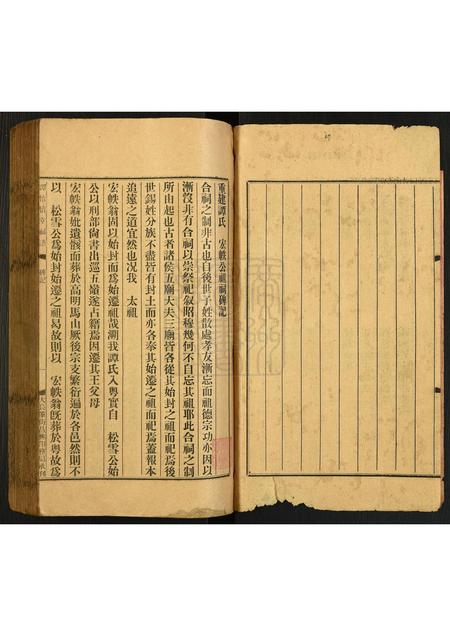 重建譚氏 宏帙公祖祠碑記
合祠之制非古也自後世子姓散處孝友漸忘而祖德宗功亦因以
漸沒非有合祠以崇祭祀叙昭穆幾何不自忘其祖耶此合祠之制
所由起也古者諸侯五廟大夫三廟皆各從其始封之祖而祀焉後
世錫姓分族不盡皆有封土而亦各奉其始遷之祖而祀焉蓋報本
追遠之道宜然也况我 太祖
宏帙翁固以始封而為始遷祖哉溯我譚氏入粵實自 松雪公始
公以刑部尚書出巡五嶺遂占籍焉因遷其王父母
宏帙翁妣遺骸而葬於高明馬山厥後宗支繁衍遍於各邑然則不
以 松雪公為始封始遷之祖曷故則以 宏帙翁旣葬於粵故為
碑記